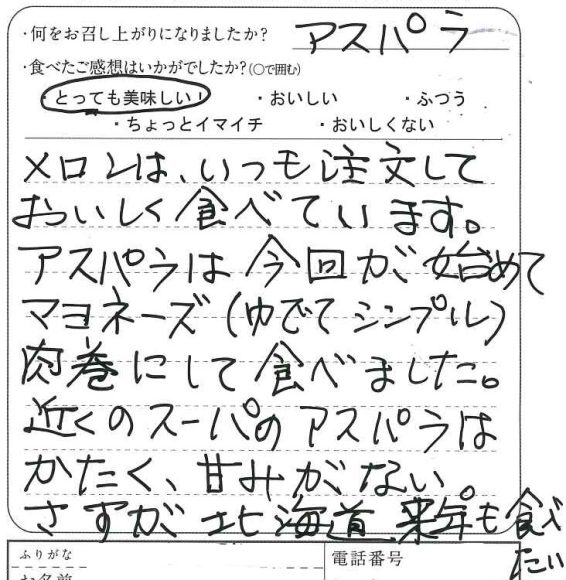 ・何をお召し上がりになりましたか? アスパラ
・食べたご感想はいかがでしたか?(○で囲む)
・とっても美味しい! ・おいしい ・ふつう
・ちょっとイマイチ ・おいしくない
メロンは、いつも注文して
おいしく食べています。
アスパラは今回が始めて
マヨネーズ(ゆでてシンプル)
肉巻にして食べました。
近くのスーパのアスパラは
かたく、甘みがない。
さすが北海道 来年も食べ
たい
ふりがな
お名前
電話番号